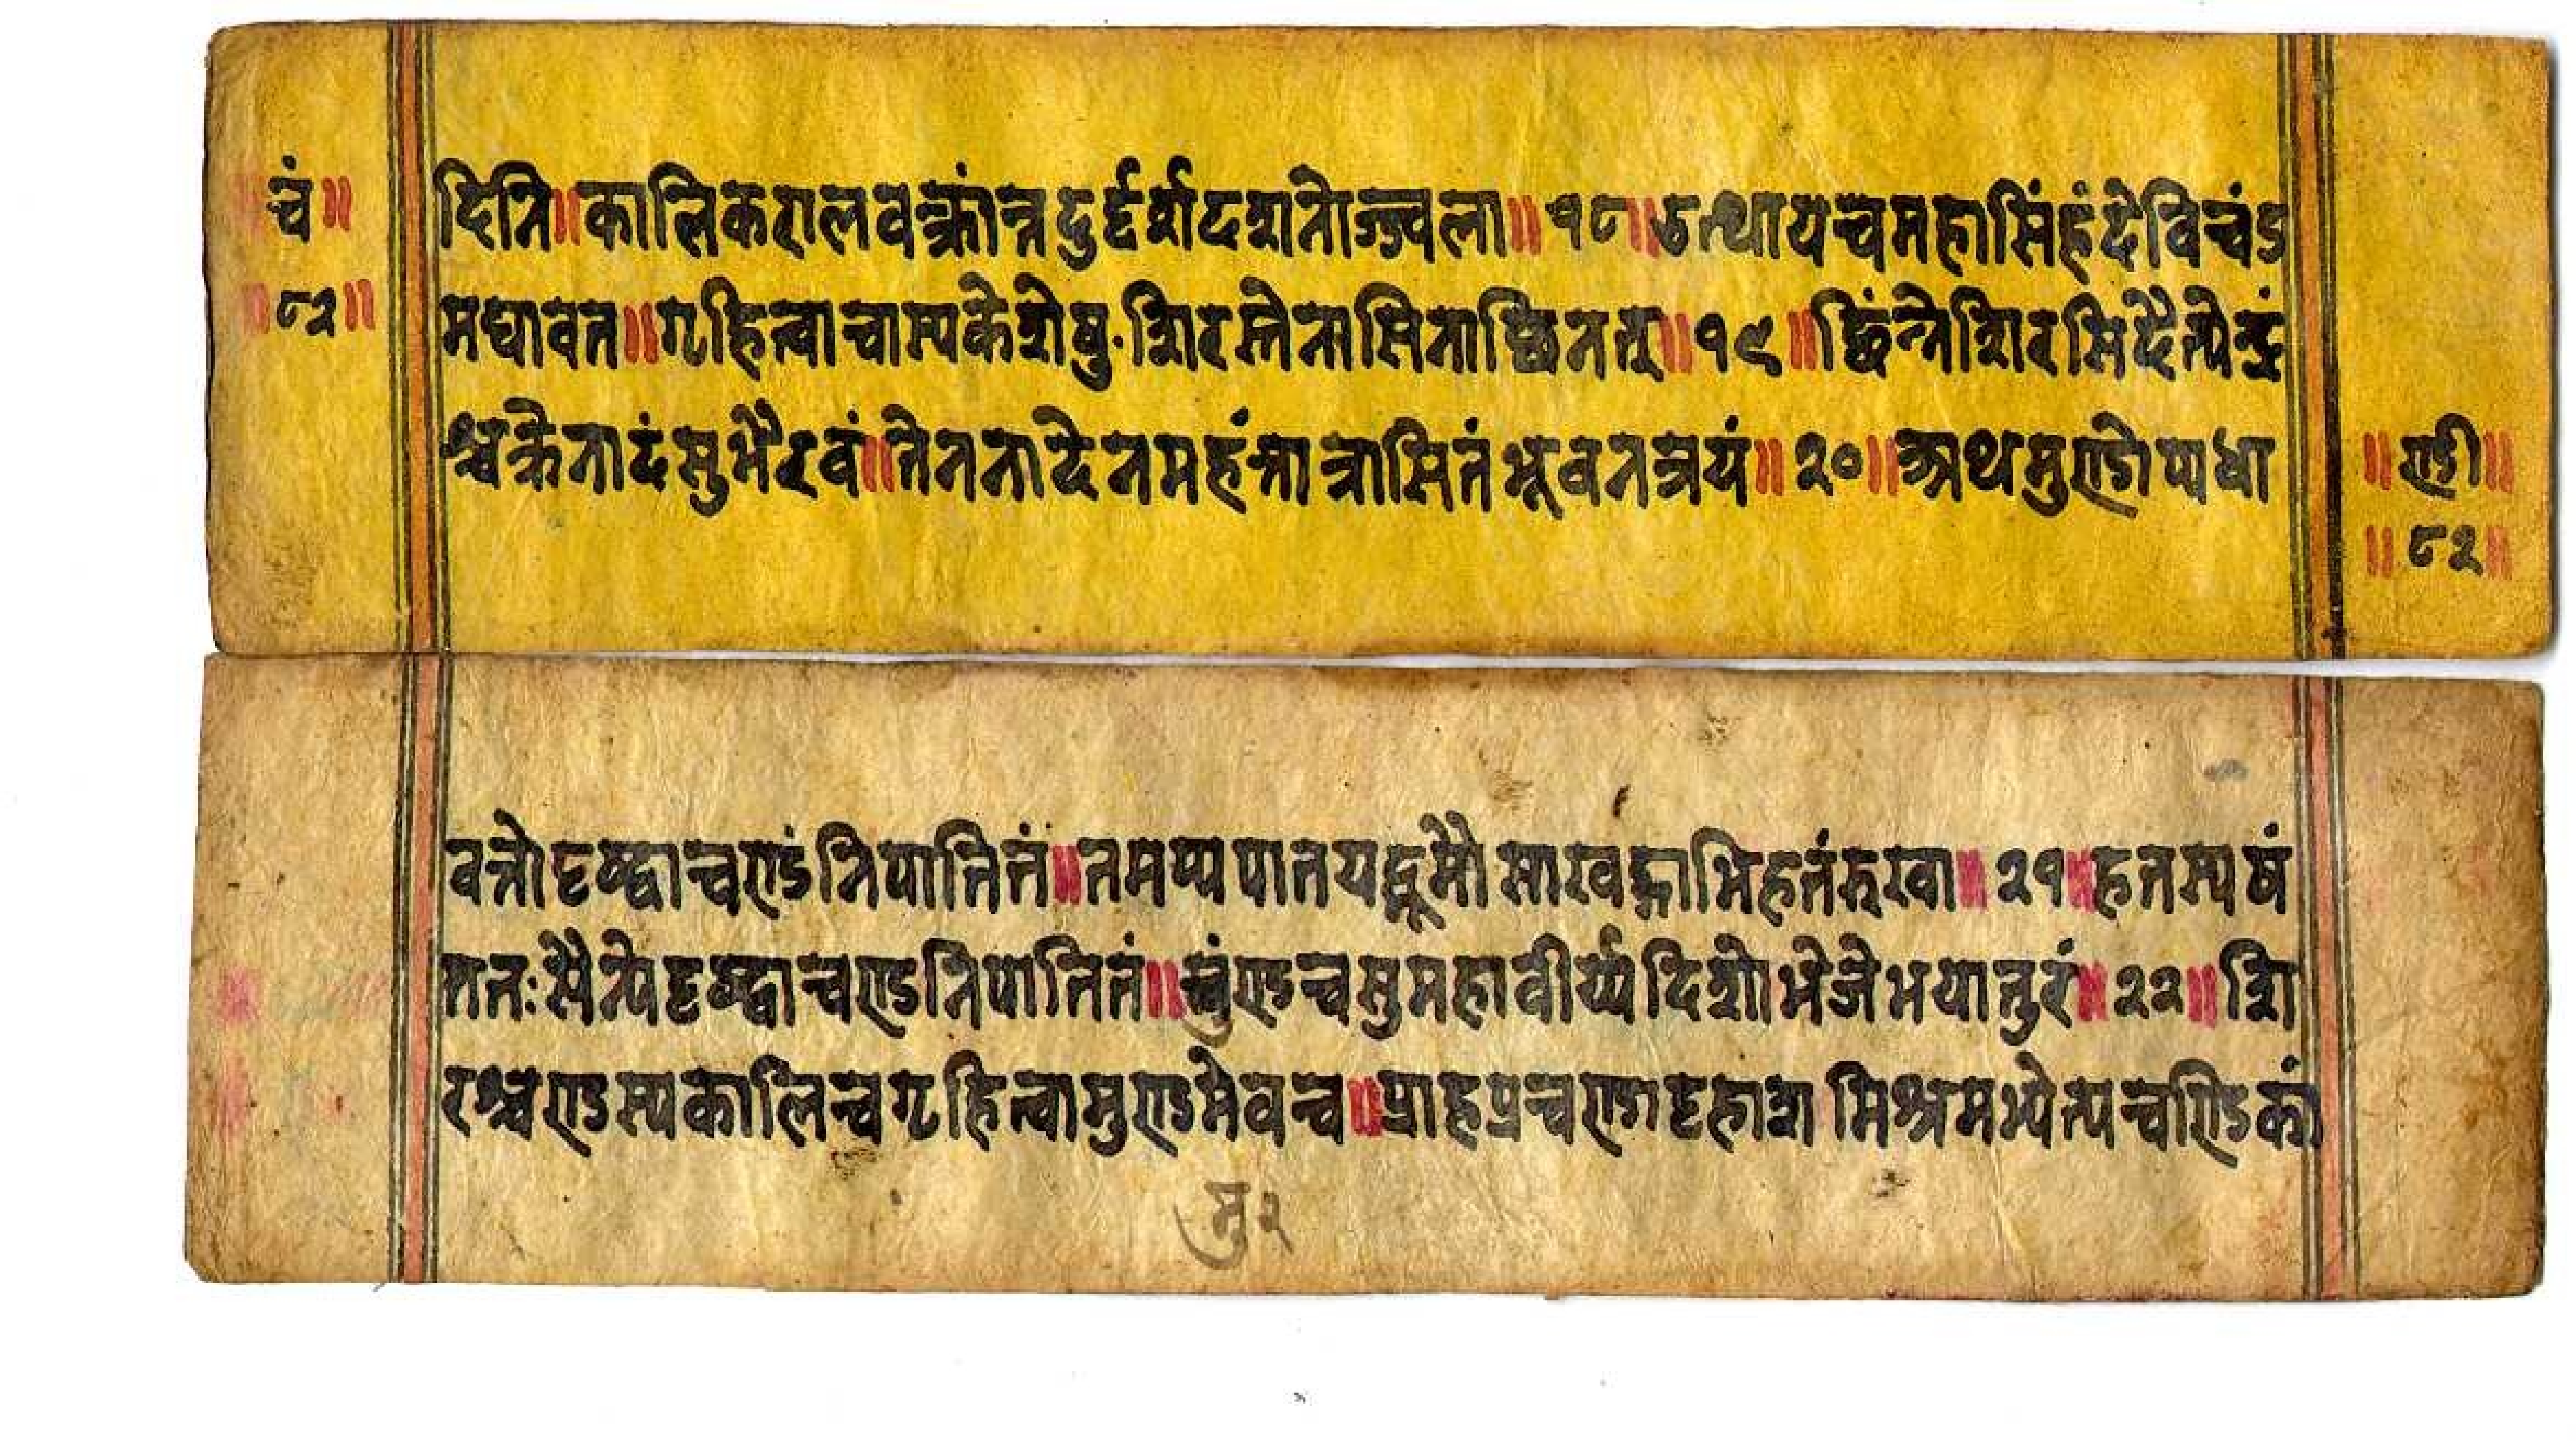 चं॥
॥८२॥
दिनि॥कालिकरालवक्रांन्त्रदुर्द्दर्शदशनोज्ज्वला॥१८॥उत्थायचमहासिंहंदेविचंड
मधावत॥गृहित्वाचास्यकेशेषु·शिरस्तेनासिनाच्छिनत्तू॥१९॥छिंन्नेशिरसिदैत्येन्द्रं
श्चक्रेनादंसुभैरवं॥तेननादेनमहंतात्रासितंभूवनत्रयं॥२०॥अथमुण्डोप्यधा
॥ण्डी॥
॥८२॥
वत्तोदृष्ट्वाचण्डंनिपातितं॥तमप्यपातयद्भूमौसाखङ्गाभिहतंरुखा॥२१॥हतस्यषं
ततःसैन्येदृष्ट्वाचण्डनिपातितं॥मुंण्डचसुमहावीर्य्यदिशोभेजेभयातुरं॥२२॥शि
रश्चण्डस्यकालिचगृहित्वामुण्डमेवच॥प्राहप्रचण्डादृहाशमिश्रमभ्येत्यचण्डिकां
मु२